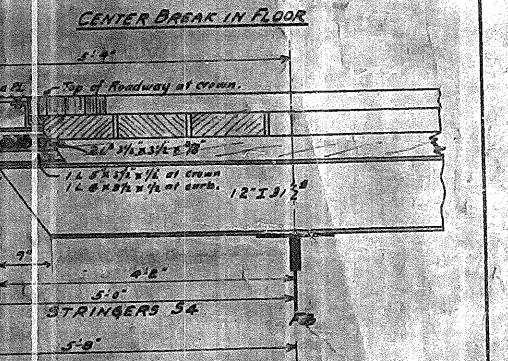 CENTER BREAK IN FLOOR
5'-9"
PL
Top of Roadway at crown.
1 L 5 x 3 1/2 x 1/2 at crown
1 L 6 x 3 1/2 x 1/2 at curb.
12" I 31 1/2 #
9"
4'-2"
5'-0"
STRINGERS S4
5'-8"